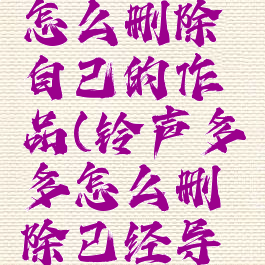 怎么删除
自己的作
品(铃声多
多怎么删
除已经导